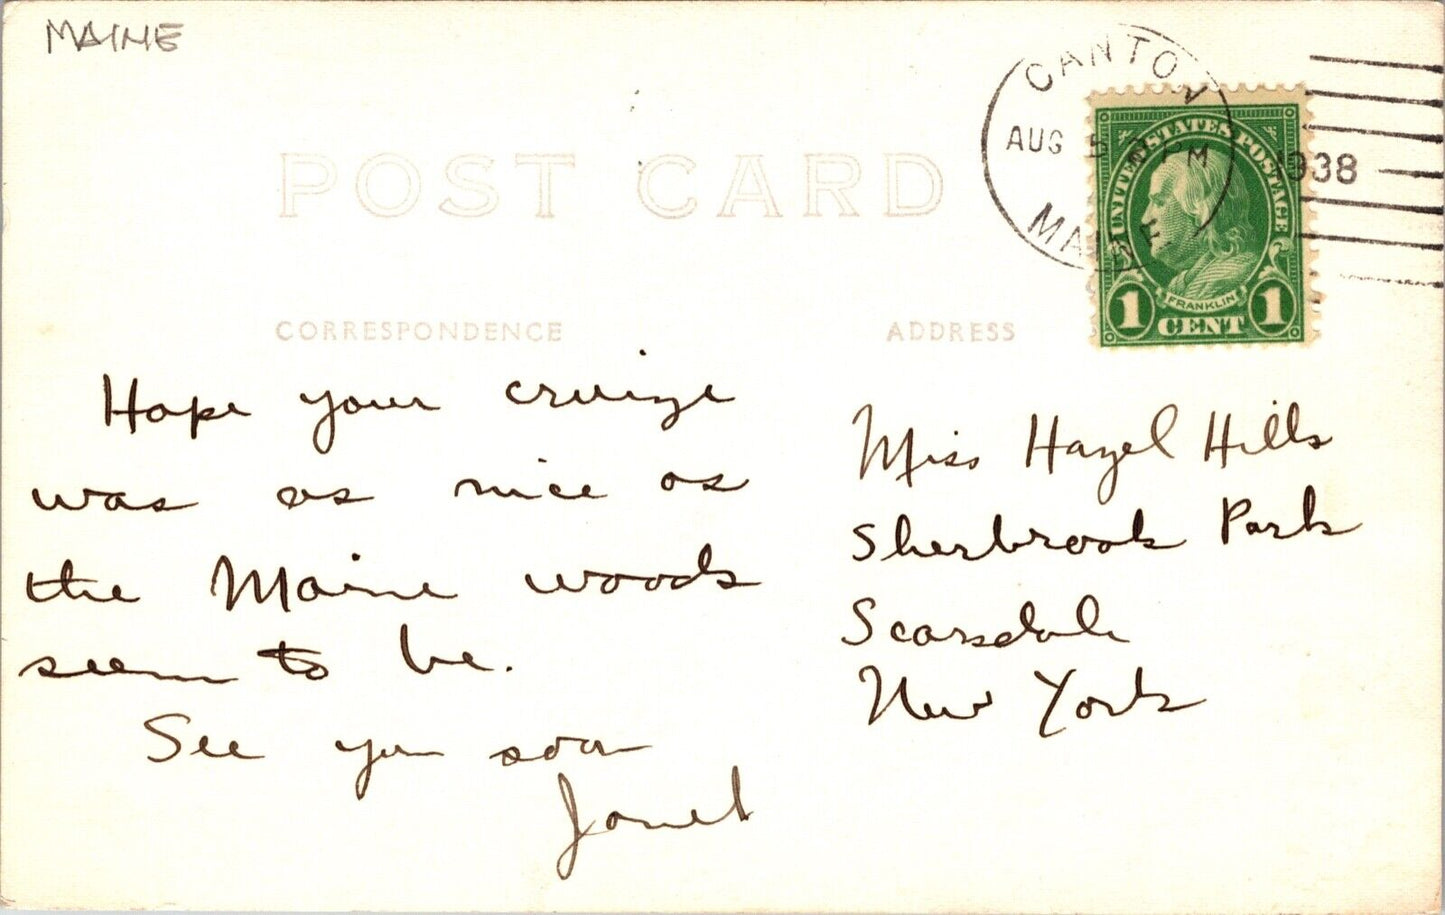 MAINE
CANTON
AUG 5 PM
MAINE
1938
UNITED STATES POSTAGE
FRANKLIN
1 CENT 1
POST CARD
CORRESPONDENCE
ADDRESS
Hope your cruize
was as nice as
the Maine woods
seem to be.
See you soon
Janet
Miss Hazel Hills
Sherbrook Park
Scarsdale
New York